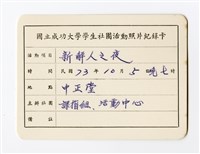 國立成功大學學生社團活動照片紀錄卡
活動項目 新鮮人之夜
時間 民國73年10月5日晚七時
地點 中正堂
主辦社團 課指組、活動中心
備註